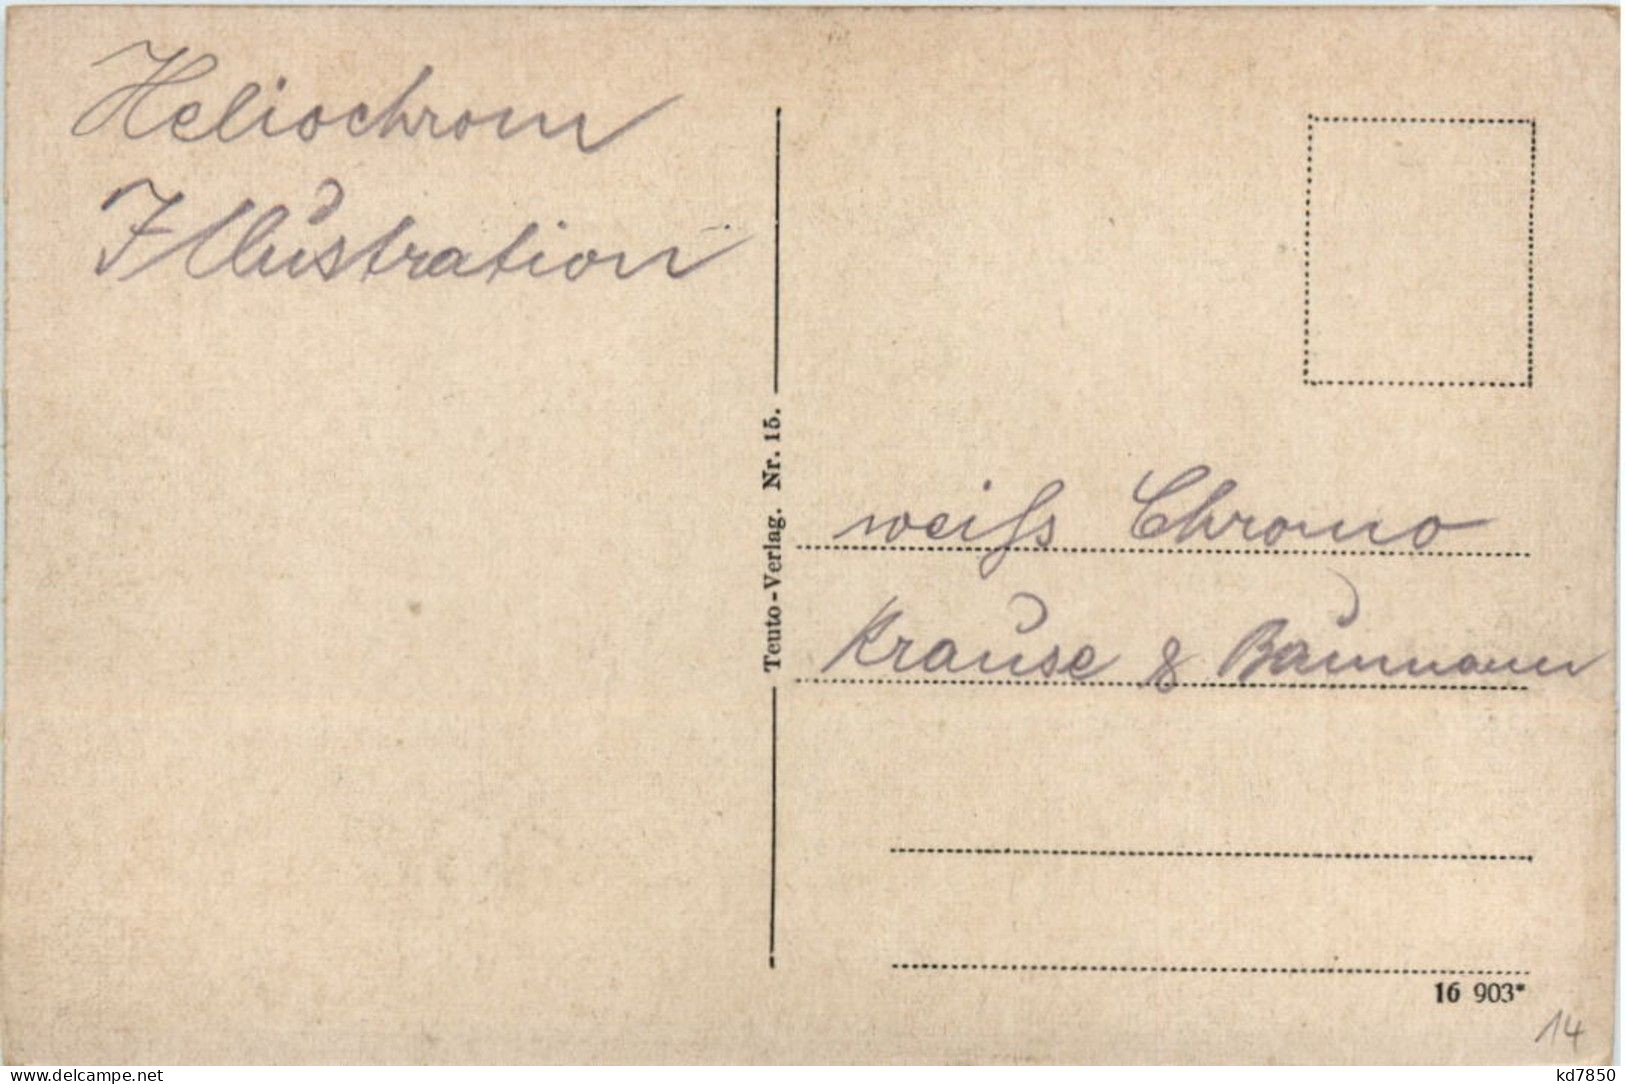 Heliochrom
Illustration
Teuto-Verlag. Nr. 15.
weiß Chromo
Krause & Baumann
16 903*
14
delcampe.net
kd7850